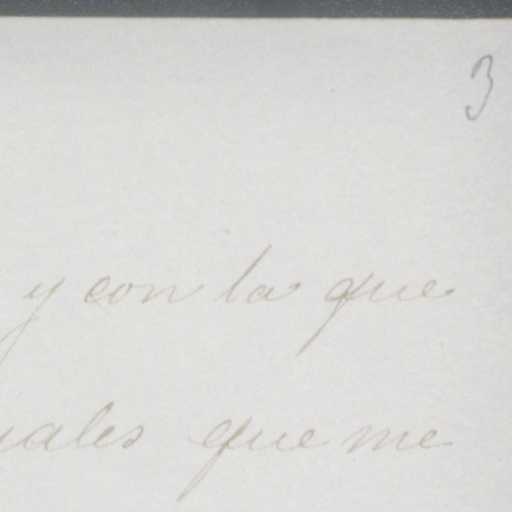 3
y con la que
uales que me